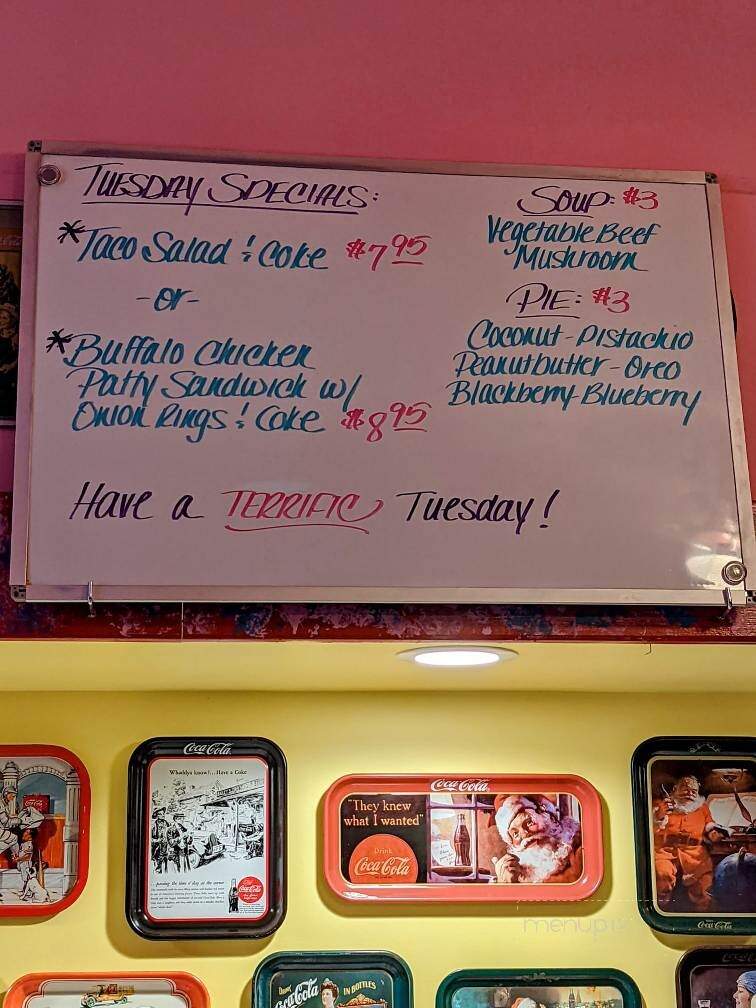 TUESDAY SPECIALS:
*Taco Salad & Coke $7 95
-or-
*Buffalo Chicken
Patty Sandwich w/
Onion Rings & Coke $8 95
SOUP: $3
Vegetable Beef
Mushroom
PIE: $3
Coconut-Pistachio
Peanutbutter-Oreo
Blackberry-Blueberry
Have a TERRIFIC Tuesday!
Coca-Cola
Whaddya know?...Have a Coke
...passing the time o' day at the corner
Coca-Cola
Coca-Cola
"They knew
what I wanted"
Drink
Coca-Cola
Coca-Cola
Drink
Coca-Cola
IN BOTTLES
menupix